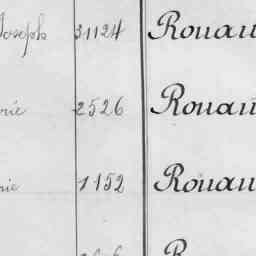 Joseph 31124 Rouau
rie 2526 Rouau
rie 1152 Rouau
R